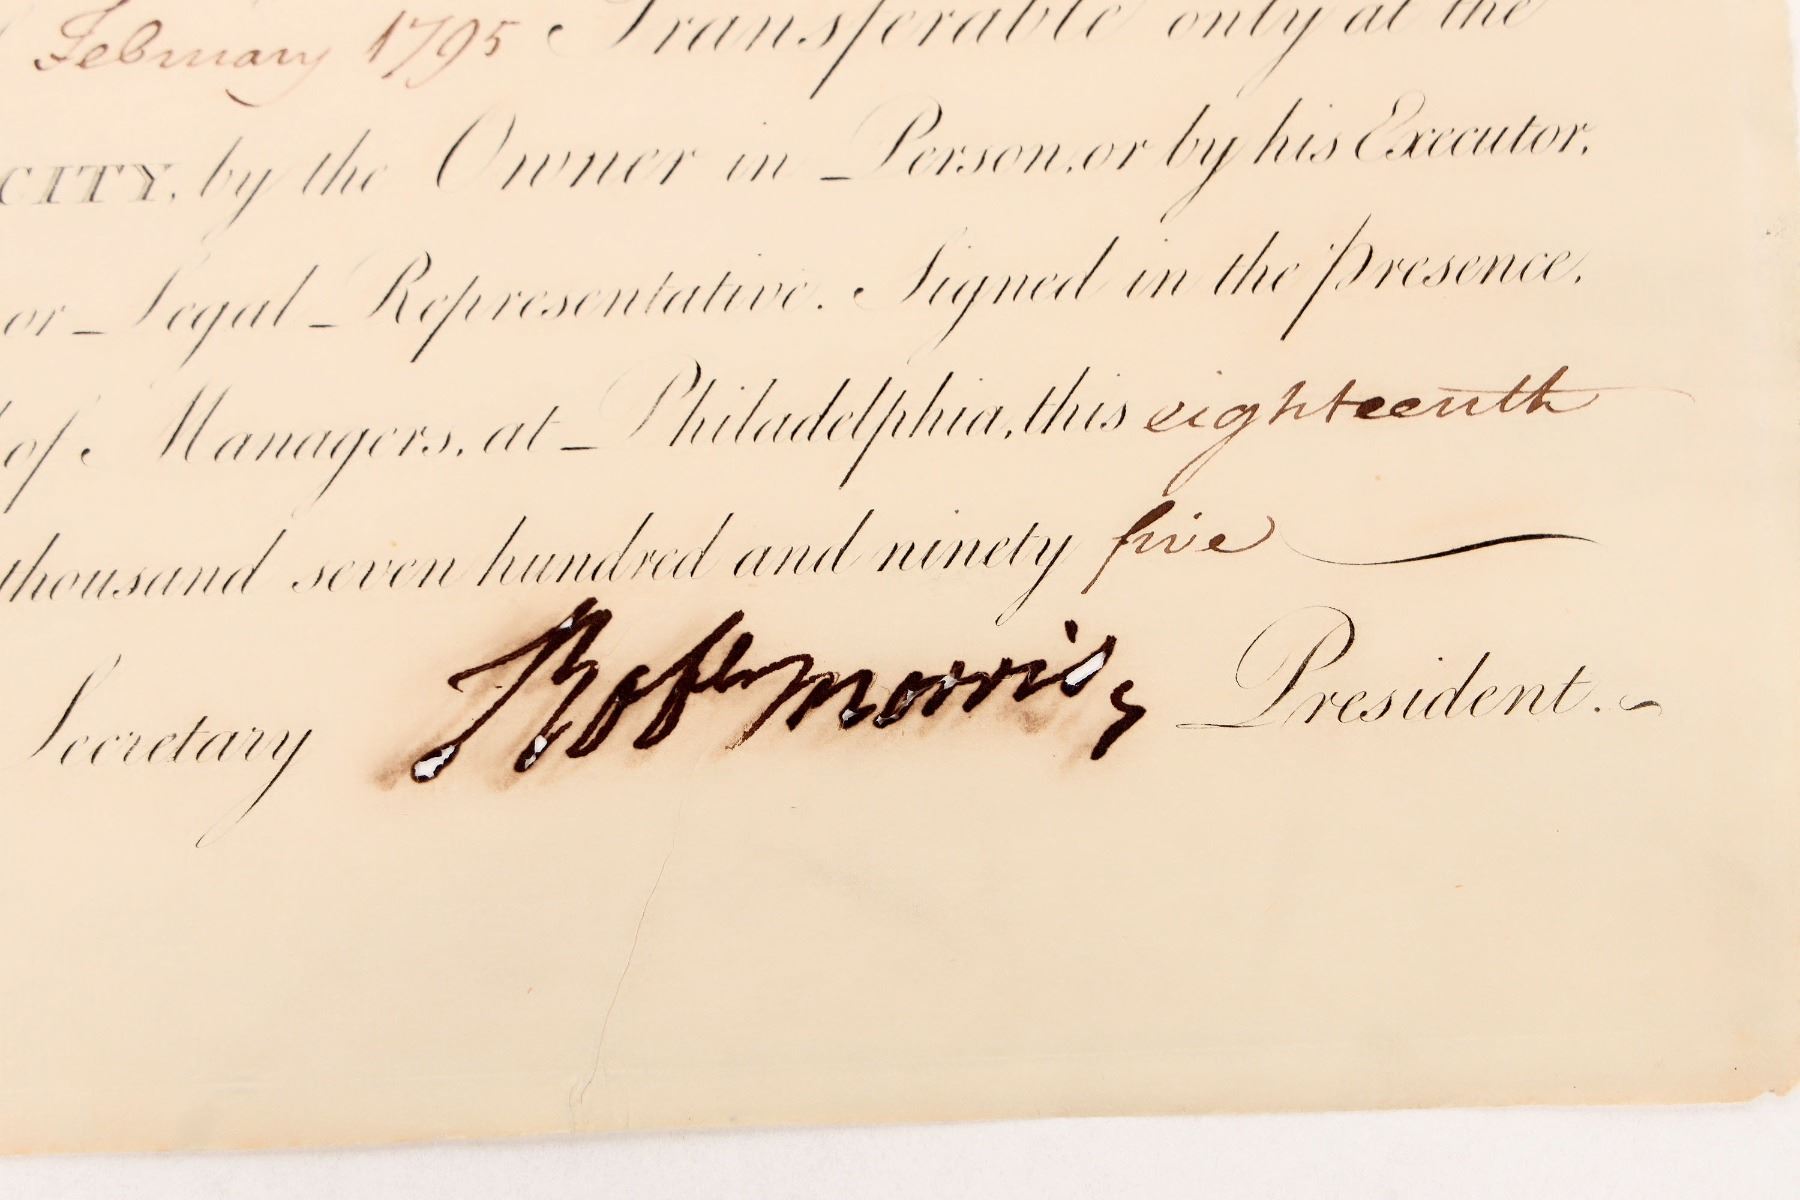 February 1795 Transferable only at the
CITY, by the Owner in Person, or by his Executor,
or Legal Representative. Signed in the presence,
of Managers, at Philadelphia, this eighteenth
thousand seven hundred and ninety five
Secretary Robt Morris, President.